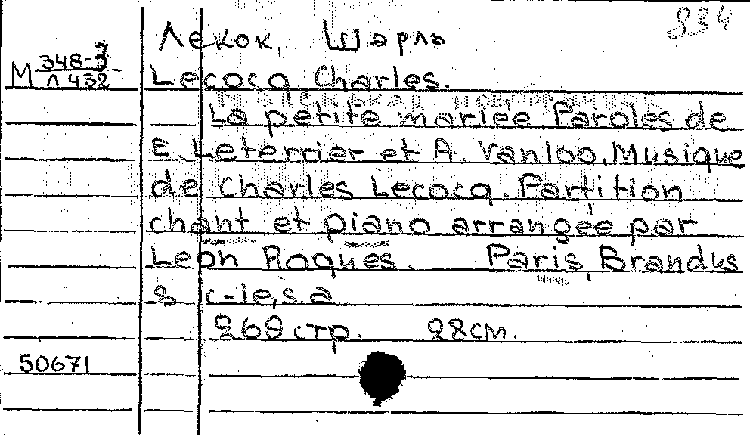 934
Лекок, Шарль
М 348-3
Л 432
Lecocq Charles.
La petite mariée Paroles de
E Leterrier et A. Vanloo, Musique
de Charles Lecocq. Partition
chant et piano arrangée par
Leon Roques. Paris, Brandus
& c-ie, s a
269 стр. 28 см.
50671